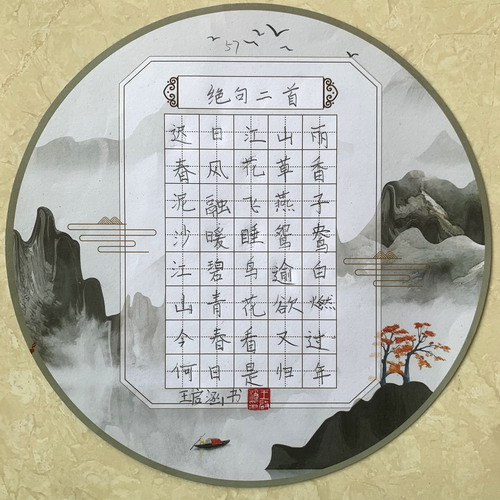 57
绝句二首
迟日江山丽
春风花草香
泥融飞燕子
沙暖睡鸳鸯
江碧鸟逾白
山青花欲燃
今春看又过
何日是归年
王宸涵书